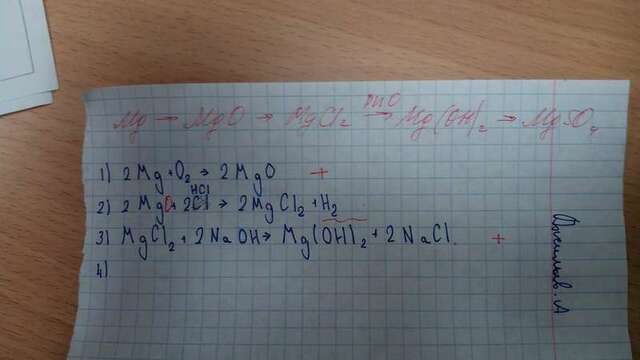 Mg → MgO → MgCl₂ → Mg(OH)₂ → MgSO₄
1) 2Mg + O₂ → 2MgO +
HCl
2) 2MgO + 2Cl → 2MgCl₂ + H₂
3) MgCl₂ + 2NaOH → Mg(OH)₂ + 2NaCl. +
4)